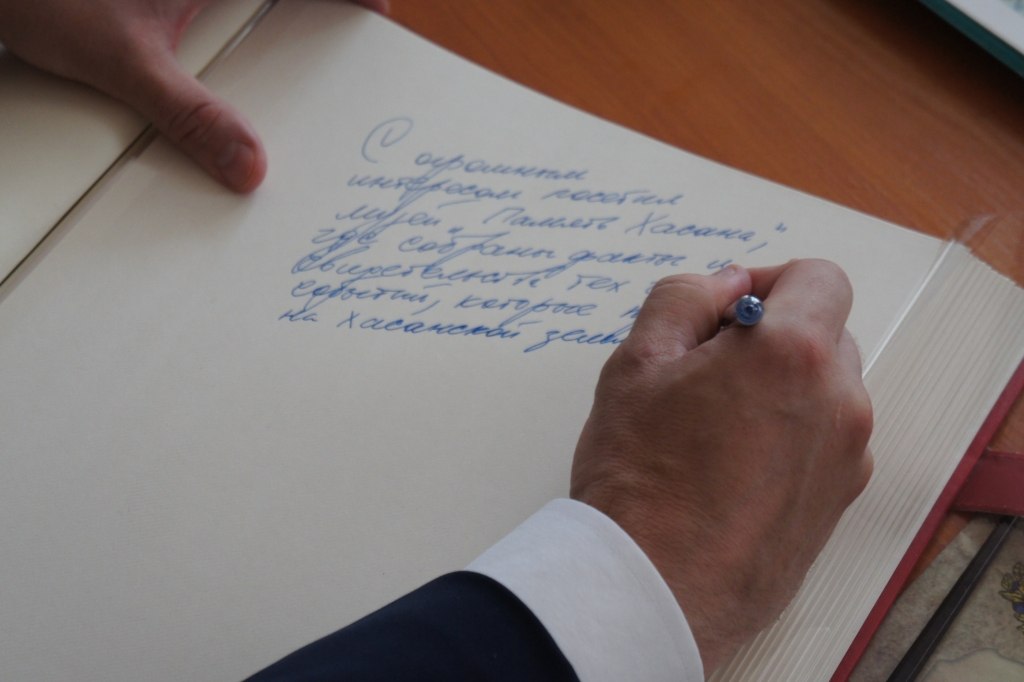 С огромным
интересом посетил
музей „Память Хасана,"
где собраны факты и
свидетельств тех
событий, которые
на Хасанской